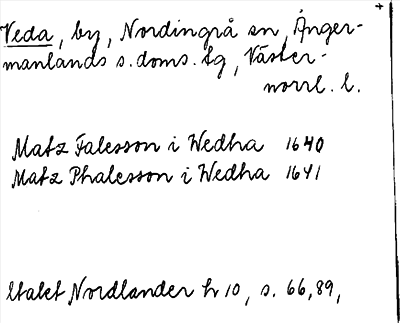 Veda, by, Nordingrå sn, Ånger-
manlands s. doms. tg, Väster-
norrl. l.
Matz Falesson i Wedha 1640
Matz Phalesson i Wedha 1641
Nordlander h 10, s. 66, 89,